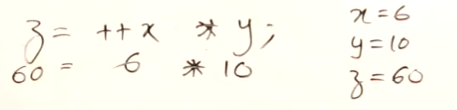 z = ++x * y;
60 = 6 * 10
x=6
y=10
z=60